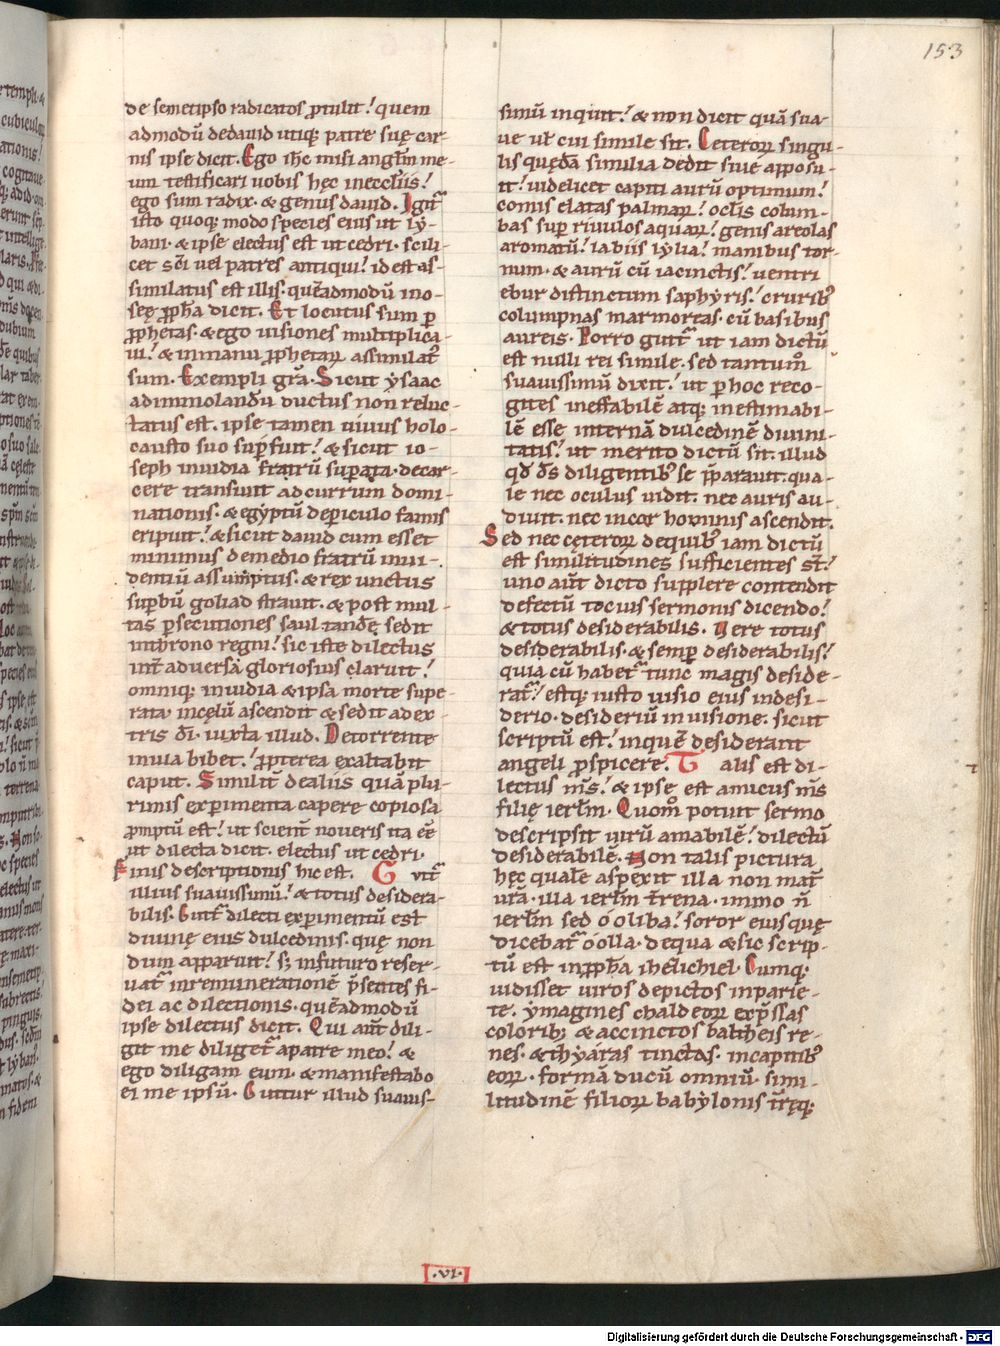 153
de semetipso radicatos ꝓtulit! quem
admodū de dauid utiqꝫ patre suę car-
nis ipse dicit. Ego ih̄c misi angl̄m me-
um testificari uobis hęc in eccl̄iis!
ego sum radix. & genus dauid. Igit᷑
isto quoqꝫ modo species eius ut ly-
bani. & ipse electus est ut cedri. scili-
cet sc̄i uel patres antiqui! id est as-
similatus est illis. quēadmodū in o-
seę ꝓph̄a dicit. Et locutus sum ꝑ
ꝓphetas. & ego uisiones multiplica-
ui! & in manu ꝓphetaꝝ assimilat᷑
sum. Exempli gr̄a. Sicut ysaac
ad immolandū ductus non reluc-
tatus est. ipse tamen uiuus holo-
causto suo suꝑfuit! & sicut io-
seph inuidia fratrū suꝑata. de car-
cere transiuit ad currum domi-
nationis. & egyptū de ꝑiculo famis
eripuit! & sicut dauid cum esset
minimus de medio fratrū inui-
dentiū assūptus. & rex unctus
suꝑbū goliad strauit. & post mul-
tas ꝑsecutiones saul tandē sedit
in throno regni! sic iste dilectus
int̄ aduersā gloriosius claruit!
omniqꝫ inuidia & ipsa morte supe-
rata. in cęlū ascendit & sedit ad ex-
tris dī. iuxta illud. De torrente
in uia bibet! ꝓpterea exaltabit
caput. Similit̄ de aliis quā plu-
rimis exꝑimenta capere copiosa
ꝓmptū est! ut scient̄ noueris ita eē
ut dilecta dicit. electus ut cedri.
Finis descriptionis hic est. Gutt᷑
illius suauissimū! & totus desidera-
bilis. Gutt᷑ dilecti exꝑimentū est
diuinę eius dulcedinis. quę non
dum apparuit! sꝫ in futuro reser-
uat᷑ in remunerationē p̄sentes fi-
dei ac dilectionis. quēadmodū
ipse dilectus dicit. Qui aut̄ dili-
git me diliget᷑ a patre meo! &
ego diligam eum. & manifestabo
ei me ipsū. Guttur illud suauis-
simū inquit! & non dicit quā sua-
ue ul̄ cui simile sit. Ceteroꝝ singu-
lis quędā similia dedit siue apposu-
it! uidelicet capiti aurū optimum!
comis elatas palmaꝝ! oculis colum-
bas suꝑ riuulos aquaꝝ! genis areolas
aromatū! labiis lylia! manibus tor-
num. & aurū cū iacinctis! uentri
ebur distinctum saphyris! cruribꝰ
columpnas marmoreas. cū basibus
aureis. Porro gutt᷑ ut iam dictū
est nulli rei simile. sed tantum̊
suauissimū dixit! ut ꝑ hoc reco-
gites ineffabilē atqꝫ inestimabi-
lē esse internā dulcedinē diuini-
tatis! ut merito dictū sit. illud
qđ d̄s diligentibꝰ se p̄parauit. qua-
le nec oculus uidit. nec auris au-
diuit. nec in cor hominis ascendit.
Sed nec ceteroꝝ de quibꝰ iam dictū
est similitudines sufficientes st̄!
uno aut̄ dicto supplere contendit
defectū tocius sermonis dicendo!
& totus desiderabilis. Vere totus
desiderabilis. & semꝑ desiderabilis!
quia cū habet᷑ tunc magis deside-
rat᷑! estqꝫ iusto uisio eius in desi-
derio. desideriū in uisione. sicut
scriptū est! in quē desiderant
angeli ꝓspicere. Talis est di-
lectus m̄s! & ipse est amicus m̄s
filię ierl̄m. Quom̊ potuit sermo
descripsit uirū amabilē! dilectū
desiderabilē. Non talis pictura
hęc qualē aspexit illa non mat᷑
ur̄a. illa ierl̄m t̄rena. immo n̄
ierl̄m sed o oliba! soror eius quę
dicebat᷑ o olla. de qua & sic scrip-
tū est in ꝓph̄a ihezichiel. Cumqꝫ
uidisset uiros depictos in parie-
te. ymagines chaldeoꝝ exp̄ssas
coloribꝫ. & accinctos baltheis re-
nes. & thyaras tinctas. in capitibꝰ
eoꝝ. formā ducū omniū. simi-
litudinē filioꝝ babylonis t̄ręqꝫ
.vi.
Digitalisierung gefördert durch die Deutsche Forschungsgemeinschaft - DFG